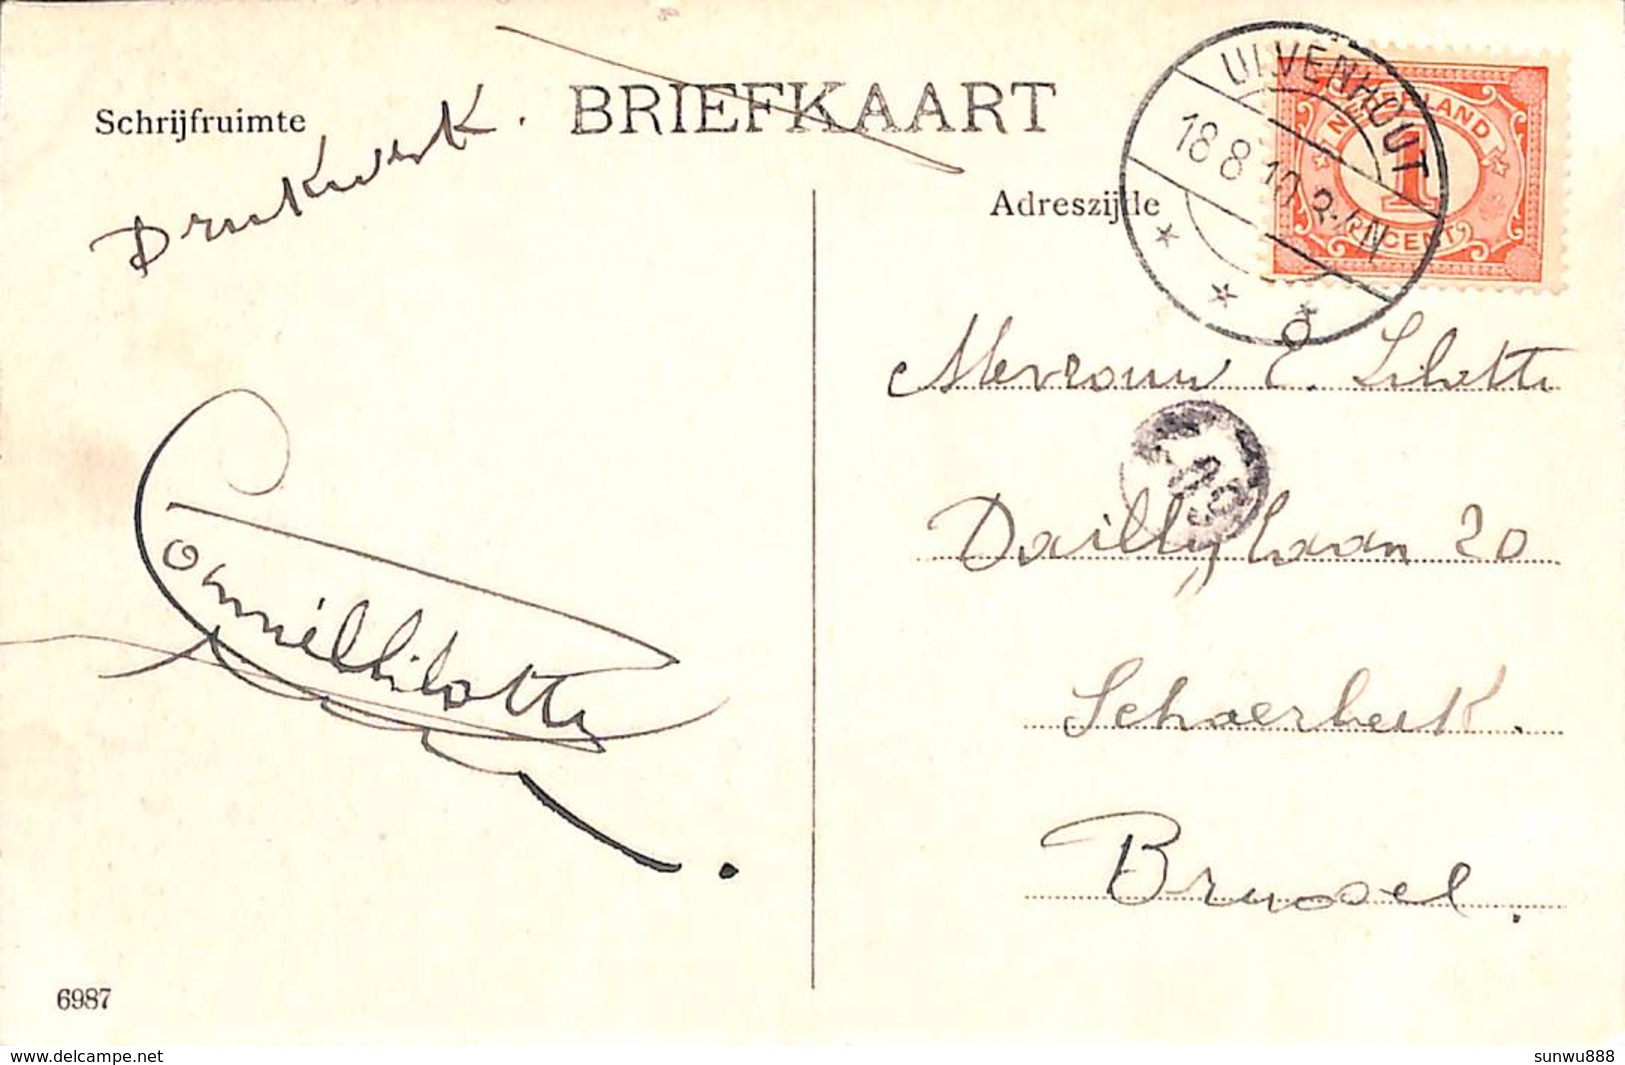 Schrijfruimte
Drukwerk.
BRIEFKAART
Adreszijde
ULVENHOUT
18 8 10
NEDERLAND
1
CENT
Mevrouw E.
Dailly Laan 20
Schaerbeek.
Brussel.
6987
www.delcampe.net
sunwu888